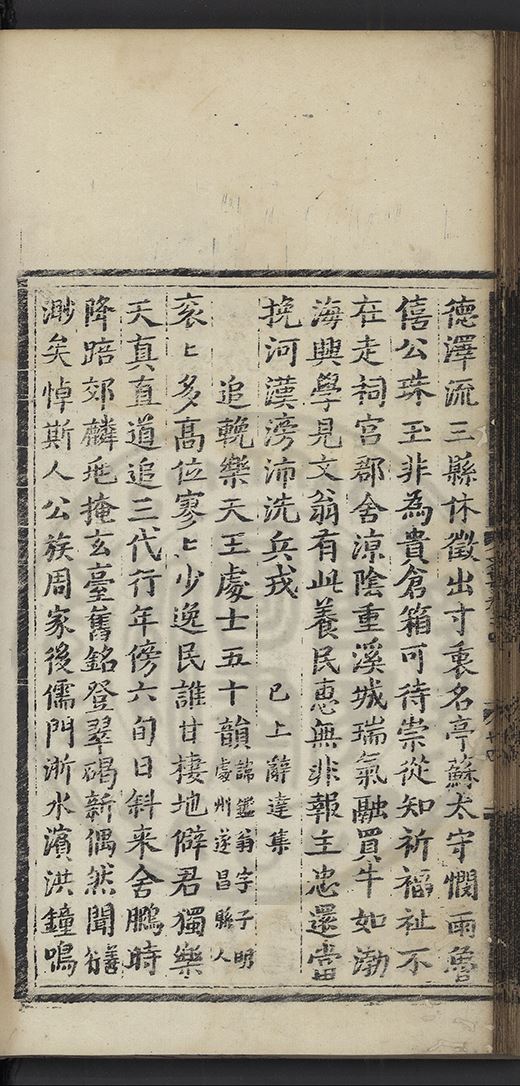 德澤流三縣休徵出寸衷名亭蘇太守憫雨魯
僖公珠玉非為貴倉箱可待崇從知祈福祉不
在走祠宮郡舍涼陰重溪城瑞氣融買牛如渤
海興學見文翁有此養民惠無非報主忠還當
挽河漢滂沛洗兵戎 已上辭達集
追輓樂天王處士五十韻諱鑑翁字子明處州遂昌縣人
衮〻多高位寥〻少逸民誰甘棲地僻君獨樂
天真直道追三代行年傍六旬日斜来舍鵬時
降踣郊麟地掩玄臺舊銘登翠碣新偶然聞䄠
渺矣悼斯人公族周家後儒門浙水濱洪鐘鳴